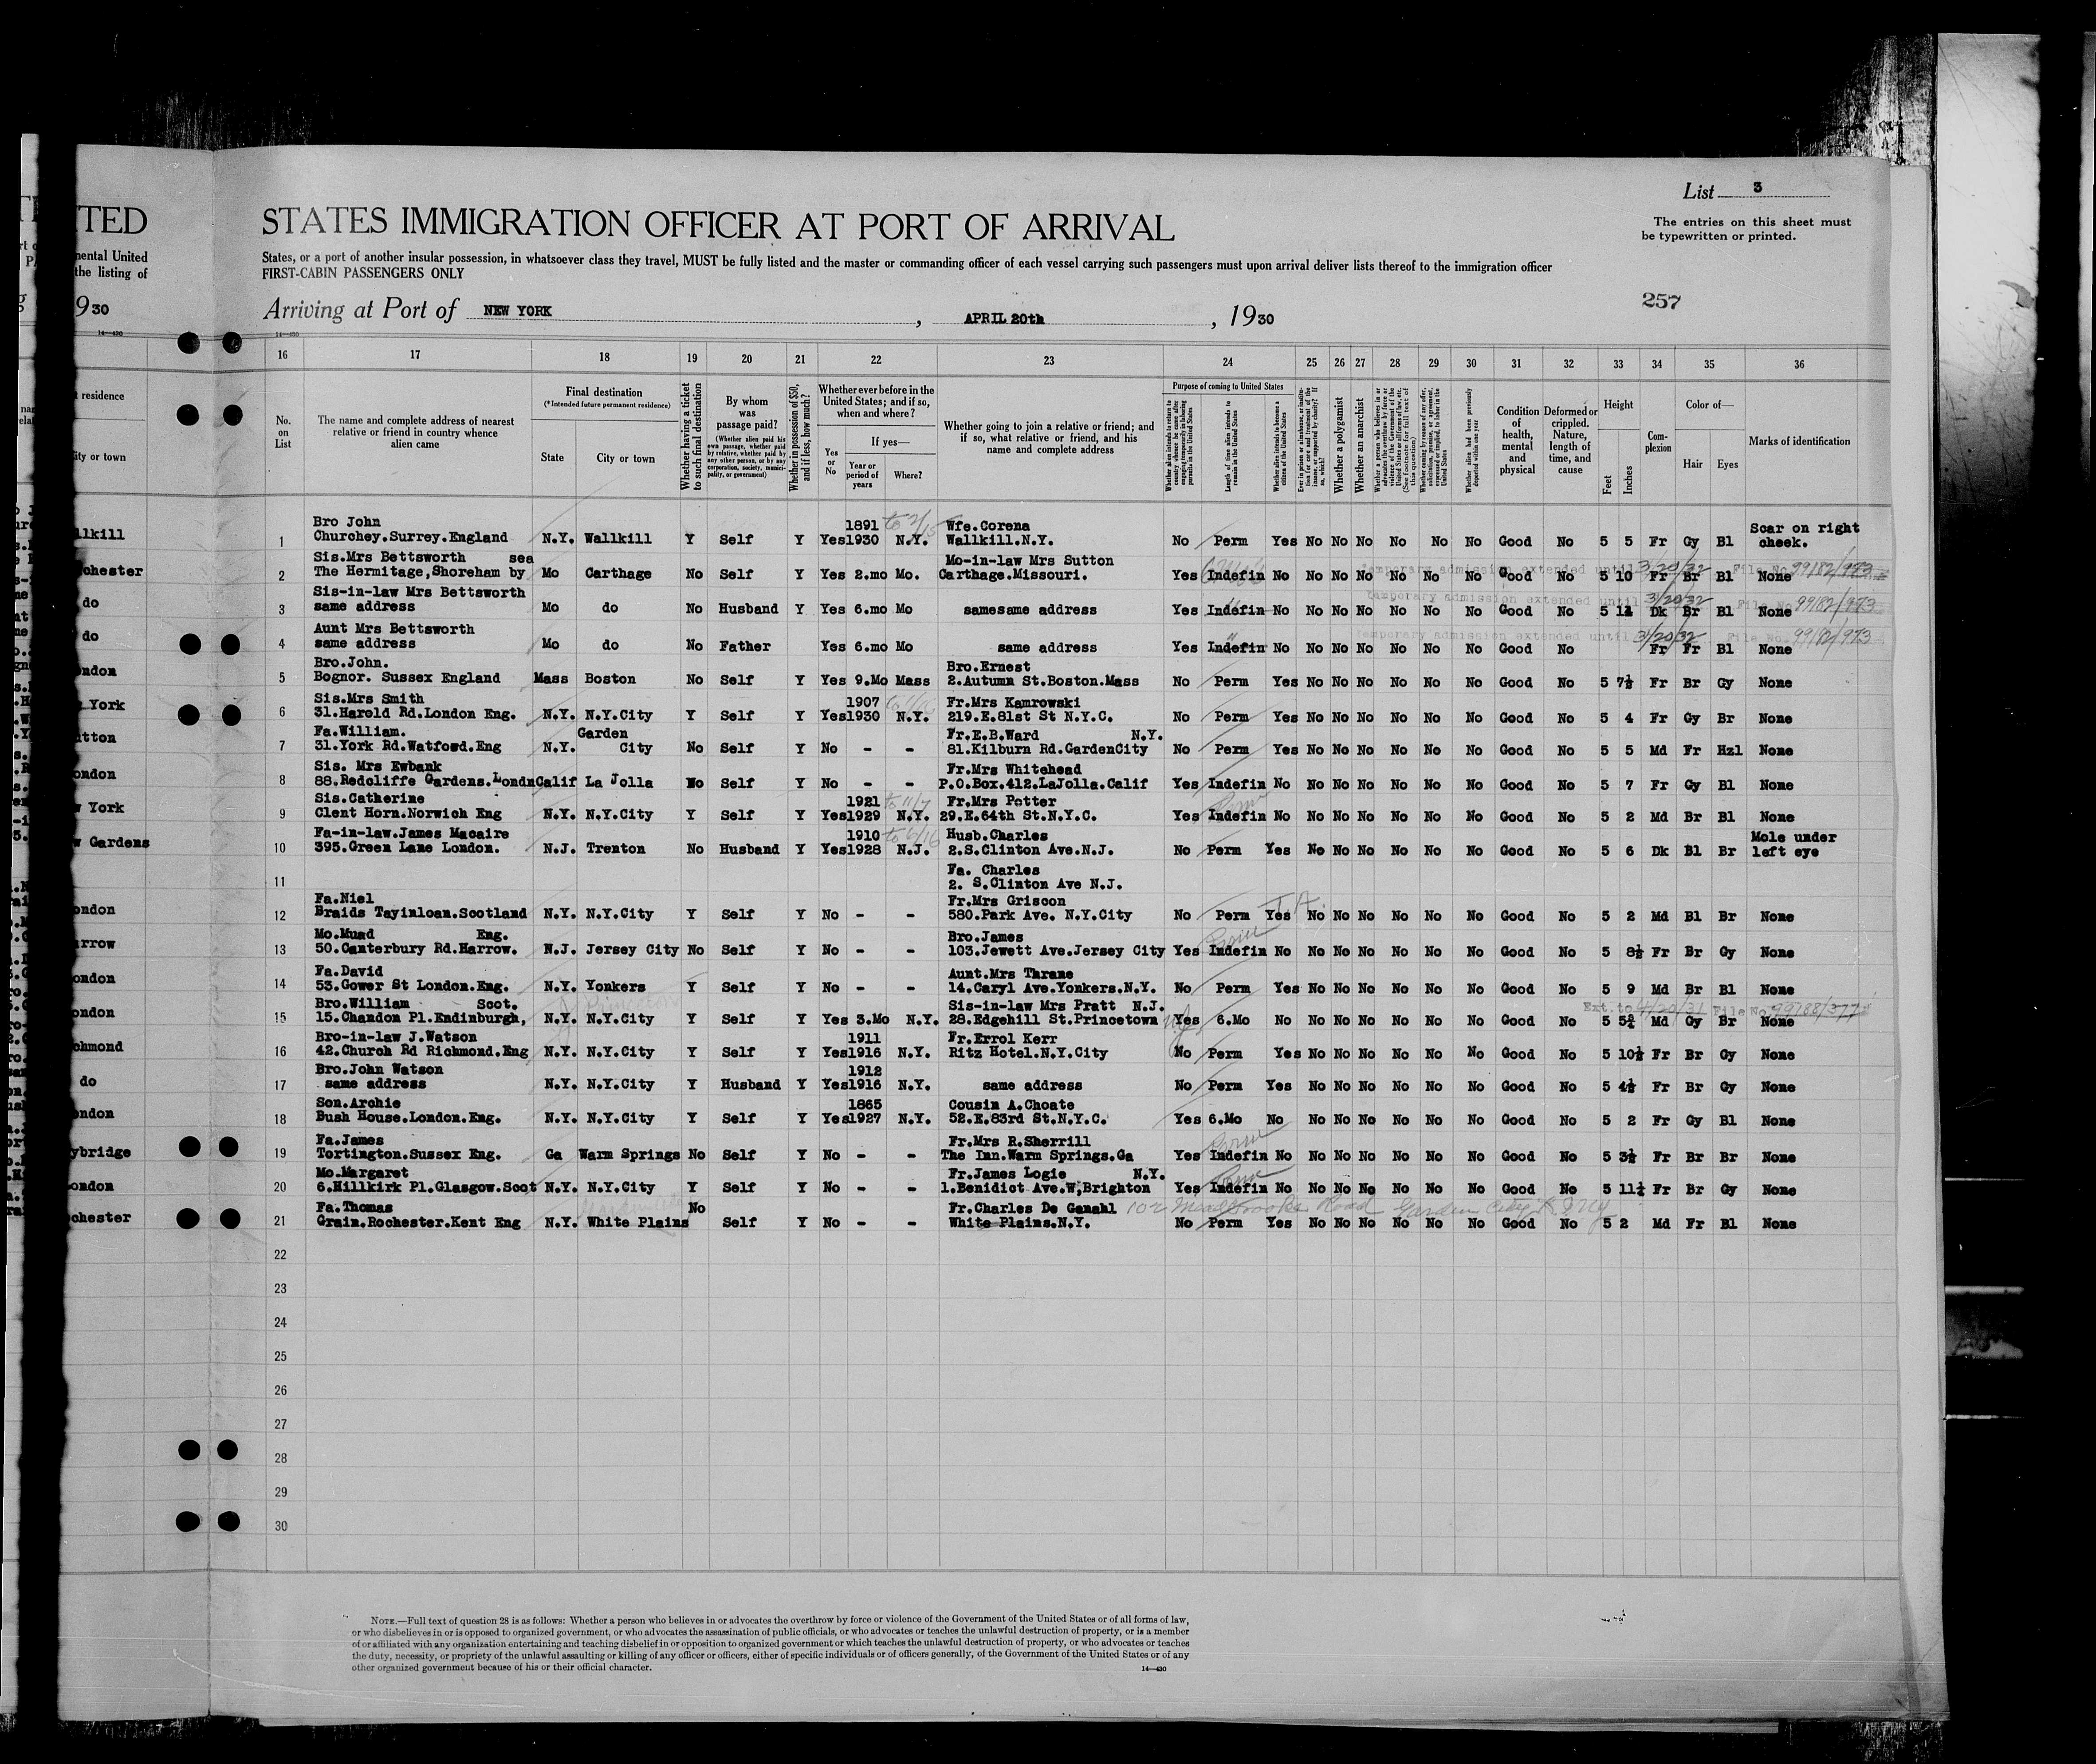 List 3
TED STATES IMMIGRATION OFFICER AT PORT OF ARRIVAL
The entries on this sheet must
be typewritten or printed.
mental United States, or a port of another insular possession, in whatsoever class they travel, MUST be fully listed and the master or commanding officer of each vessel carrying such passengers must upon arrival deliver lists thereof to the immigration officer
the listing of FIRST-CABIN PASSENGERS ONLY
257
930 Arriving at Port of NEW YORK, APRIL 20th, 1930
14—430 14—430
16 17 18 19 20 21 22 23 24 25 26 27 28 29 30 31 32 33 34 35 36
No. on List
The name and complete address of nearest relative or friend in country whence alien came
Final destination
(*Intended future permanent residence)
State City or town
Whether having a ticket to such final destination
By whom was passage paid?
(Whether alien paid his own passage, whether paid by relative, whether paid by any other person, or by any corporation, society, municipality, or government)
Whether in possession of $50, and if less, how much?
Whether ever before in the United States; and if so, when and where?
Yes or No
If yes—
Year or period of years Where?
Whether going to join a relative or friend; and if so, what relative or friend, and his name and complete address
Purpose of coming to United States
Length of time alien intends to remain in the United States
Whether alien intends to become a citizen of the United States
Whether a polygamist
Whether an anarchist
Whether alien had been previously deported within one year
Condition of health, mental and physical
Deformed or crippled. Nature, length of time, and cause
Height
Feet Inches
Complexion
Color of—
Hair Eyes
Marks of identification
residence
City or town
Bro John 1891 Wfe.Corena Scar on right
1 Churchey.Surrey.England N.Y. Wallkill Y Self Y Yes1930 N.Y. Wallkill.N.Y. No Perm Yes No No No No No No Good No 5 5 Fr Gy Bl cheek.
Sis.Mrs Bettsworth sea Mo-in-law Mrs Sutton Temporary admission extended until 3/20/32 File No 99182/973
2 The Hermitage,Shoreham by Mo Carthage No Self Y Yes 2.mo Mo. Carthage.Missouri. Yes Indefin No No No No No No No Good No 5 10 Fr Br Bl None
Sis-in-law Mrs Bettsworth Temporary admission extended until 3/20/32 File No 99182/973
3 same address Mo do No Husband Y Yes 6.mo Mo samesame address Yes Indefin No No No No No No No Good No 5 Dk Br Bl None
Aunt Mrs Bettsworth Temporary admission extended until 3/20/32 File No. 99182/973
4 same address Mo do No Father Yes 6.mo Mo same address Yes Indefin No No No No No No No Good No Fr Fr Bl None
Bro.John. Bro.Ernest
5 Bognor. Sussex England Mass Boston No Self Y Yes 9.Mo Mass 2.Autumn St.Boston.Mass No Perm Yes No No No No No No Good No 5 7½ Fr Br Gy None
Sis.Mrs Smith 1907 Fr.Mrs Kamrowski
6 31.Harold Rd.London Eng. N.Y. N.Y.City Y Self Y Yes1930 N.Y. 219.E.81st St N.Y.C. No Perm Yes No No No No No No Good No 5 4 Fr Gy Br None
Fa.William. Garden Fr.E.B.Ward N.Y.
7 31.York Rd.Watford.Eng N.Y. City No Self Y No - - 81.Kilburn Rd.GardenCity No Perm Yes No No No No No No Good No 5 5 Md Fr Hzl None
Sis. Mrs Ewbank Fr.Mrs Whitehead
8 88.Redcliffe Gardens.Londn Calif La Jolla No Self Y No - - P.O.Box.412.LaJolla.Calif Yes Indefin No No No No No No No Good No 5 7 Fr Gy Bl None
Sis.Catherine 1921 to 11/7 Fr.Mrs Potter Perm
9 Clent Horn.Norwich Eng N.Y. N.Y.City Y Self Y Yes1929 N.Y. 29.E.64th St.N.Y.C. Yes Indefin No No No No No No No Good No 5 2 Md Br Bl None
Fa-in-law.James Macaire 1910 to 6/16 Husb.Charles Mole under
10 395.Green Lane London. N.J. Trenton No Husband Y Yes1928 N.J. 2.S.Clinton Ave.N.J. No Perm Yes No No No No No No Good No 5 6 Dk Bl Br left eye
Fa. Charles
11 2. S.Clinton Ave N.J.
Fa.Niel Fr.Mrs Griscon
12 Braids Tayinloan.Scotland N.Y. N.Y.City Y Self Y No - - 580.Park Ave. N.Y.City No Perm Yes No No No No No No Good No 5 2 Md Bl Br None
Mo.Muad Eng. Bro.James Perm
13 50.Canterbury Rd.Harrow. N.J. Jersey City No Self Y No - - 103.Jewett Ave.Jersey City Yes Indefin No No No No No No No Good No 5 8½ Fr Br Gy None
Fa.David Aunt.Mrs Thrane
14 53.Gower St London.Eng. N.Y. Yonkers Y Self Y No - - 14.Caryl Ave.Yonkers.N.Y. No Perm Yes No No No No No No Good No 5 9 Md Br Bl None
Bro.William Scot. Sis-in-law Mrs Pratt N.J. Ext.to 4/20/31 File No 99188/377
15 15.Chandon Pl.Endinburgh, N.Y. N.Y.City Y Self Y Yes 3.Mo N.Y. 28.Edgehill St.Princetown Yes 6.Mo No No No No No No No Good No 5 Md Gy Br None
Bro-in-law J.Watson 1911 Fr.Errol Kerr
16 42.Church Rd Richmond.Eng N.Y. N.Y.City Y Self Y Yes1916 N.Y. Ritz Hotel.N.Y.City No Perm Yes No No No No No No Good No 5 10½ Fr Br Gy None
Bro.John Watson 1912
17 same address N.Y. N.Y.City Y Husband Y Yes1916 N.Y. same address No Perm Yes No No No No No No Good No 5 4½ Fr Br Gy None
Son.Archie 1865 Cousin A.Choate
18 Bush House.London.Eng. N.Y. N.Y.City Y Self Y Yes1927 N.Y. 52.E.83rd St.N.Y.C. Yes 6.Mo No No No No No No No Good No 5 2 Fr Gy Bl None
Fa.James Fr.Mrs R.Sherrill Perm
19 Tortington.Sussex Eng. Ga Warm Springs No Self Y No - - The Inn.Warm Springs.Ga Yes Indefin No No No No No No No Good No 5 3½ Fr Br Br None
Mo.Margaret Fr.James Logie N.Y. Perm
20 6.Hillkirk Pl.Glasgow.Scot N.Y. N.Y.City Y Self Y No - - 1.Benidict Ave.W.Brighton Yes Indefin No No No No No No No Good No 5 11½ Fr Br Gy None
Fa.Thomas No Fr.Charles De Ganahl 102 Meadbrooks Road Garden City
21 Grain.Rochester.Kent Eng N.Y. White Plains Self Y No - - White Plains.N.Y. No Perm Yes No No No No No No Good No 5 2 Md Fr Bl None
22
23
24
25
26
27
28
29
30
NOTE.—Full text of question 28 is as follows: Whether a person who believes in or advocates the overthrow by force or violence of the Government of the United States or of all forms of law,
or who disbelieves in or is opposed to organized government, or who advocates the assassination of public officials, or who advocates or teaches the unlawful destruction of property, or is a member
of or affiliated with any organization entertaining and teaching disbelief in or opposition to organized government or which teaches the unlawful destruction of property, or who advocates or teaches
the duty, necessity, or propriety of the unlawful assaulting or killing of any officer or officers, either of specific individuals or of officers generally, of the Government of the United States or of any
other organized government because of his or their official character.
14—430